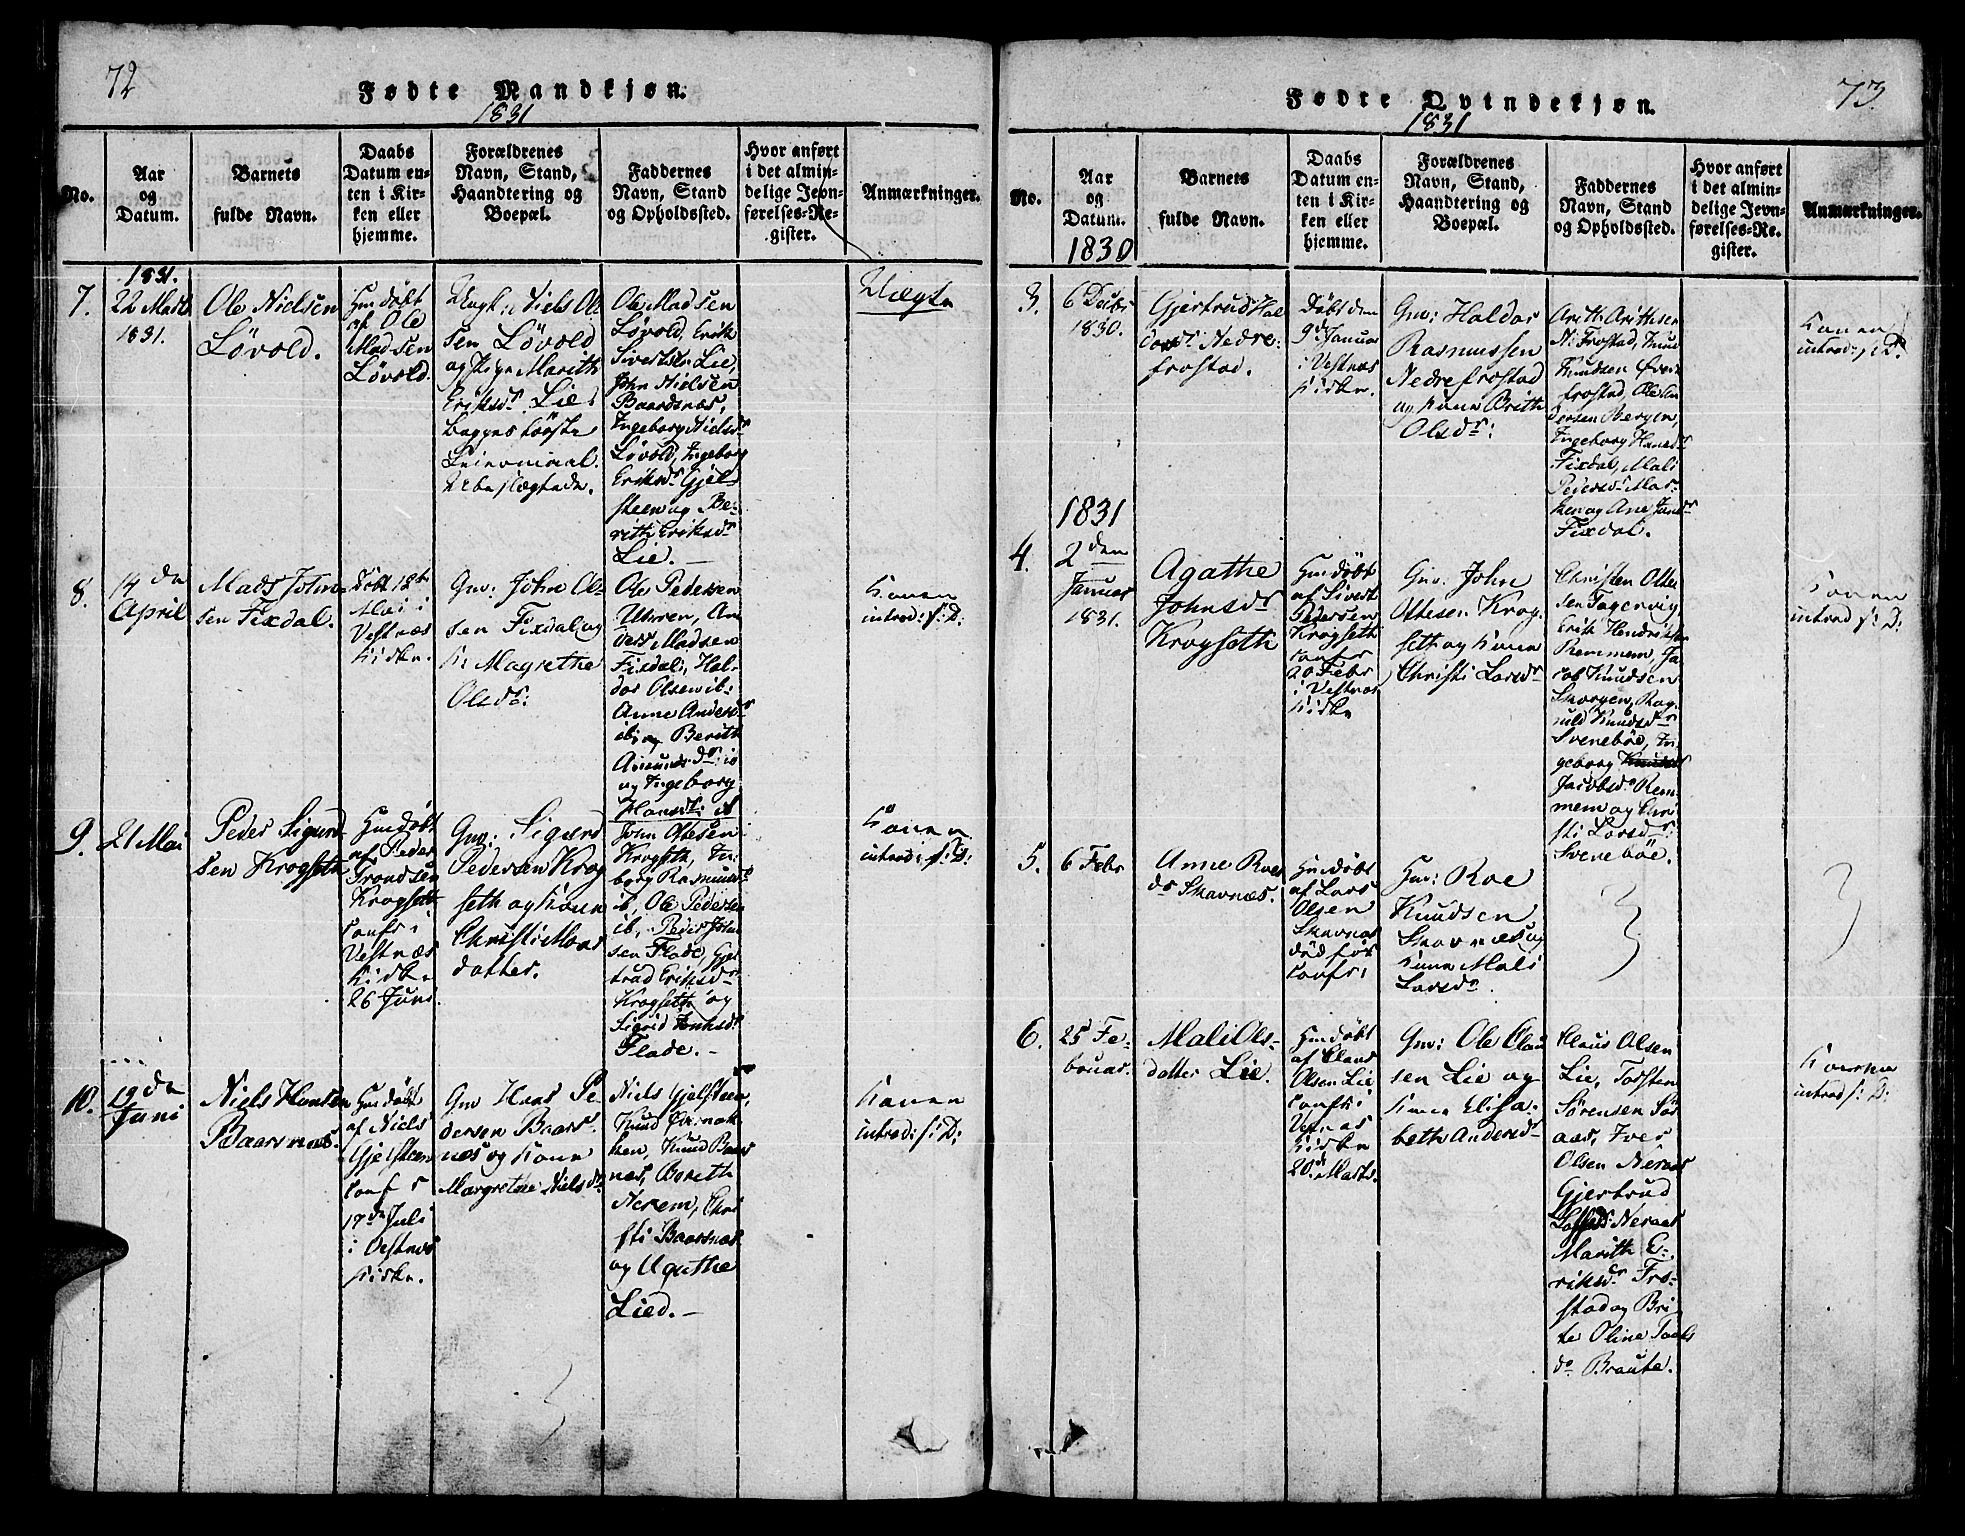 72
Fødte Mandkjøn.
1831
No.
Aar
og
Datum.
Barnets
fulde Navn.
Daabs
Datum en-
ten i Kir-
ken eller
hjemme.
Forældrenes
Navn, Stand,
Haandtering og
Boepæl.
Faddernes
Navn, Stand
og Opholdssted.
Hvor anført
i det almin-
delige Jevn-
førelses-Re-
gister.
Anmærkninger.
1831.
7.
22 Marts
1831.
Ole Nielsen
Lövold.
Hmdöbt
af Ole
Madsen
Lövold.
Ungk. Niels Ol
sen Lövold
og Pige Marith
Eriksdr. Lie.
begges første
Leiermaal.
Ole Madsen
Lövold, Erik
Sivertsen Lie,
John Nielsen
Baardsnæs,
Ingeborg Nielsdr
Lövold, Ingeborg
Eriksdr. Gjel-
steen og Be-
rith Eriksdr
Lie.
Uægte
8.
14 de
April
Mads John-
sen Fixdal.
Döbt 12te
Mai i
Vestnæs
Kirke.
Gm: John Ol-
sen Fixdal og
K. Magrethe
Olsdr:
Ole Pedersen
Uhren, An-
ders Madsen
Fixdal, Hal-
dor Olsen ib:
Anne Andersdr
ib: og Berith
Amundsdr: ib
og Ingeborg
Hansdr: ib
Konen
introd: s: D:
9.
21 Mai
Peder Sigurd-
sen Krogseth
Hmdöbt
af Peder
Trondsen
Krogseth
confr i
Vestnæs
Kirke
26 Juni
Gm: Sigurd
Pedersen Krog
seth og Kone
Christi Mons
datter.
John Ottesen
Krogseth, In-
borg Rasmusdr
ib, Ole Pedersen
ib, Peder John
sen Flade, Gjer
trud Eriksdr
Krogseth og
Sigrid
Flade.
Konen
introd: s: D:
10.
19 de
Juni
Niels Hansen
Baarsnæs.
Hmdöbt
af Niels
Gjelsteen
conf r
17de Juli
i Vestnæs
Kirke.
Gm Hans Pe
dersen Baars-
næs og Kone
Margrethe Nielsdr.
Niels Gjelsteen,
Knud
ken, Knud Baars
næs, Berith
Nerem, Chri
sti Baarsnæs
og Agathe
Lied.
Konen
introd: s: D:
73.
Fødte Qvindekjøn.
1831
No.
Aar
og
Datum.
1830
Barnets
fulde Navn.
Daabs
Datum en-
ten i Kir-
ken eller
hjemme.
Forældrenes
Navn, Stand,
Haandtering og
Boepæl.
Faddernes
Navn, Stand
og Opholdssted.
Hvor anført
i det almin-
delige Jevn-
førelses-Re-
gister.
Anmærkninger.
3.
6 Decbr
1830.
Gjertrud Hal
dorsdr. Nedre-
frostad.
Döbt den
9de Januar
i Vestnæs
Kirke.
Gm: Haldor
Rasmussen
Nedrefrostad
og Kone Brith
Olsdr:
N: Frostad, Knud
Knudsen Øvre
frostad, Ole An
dersen Bergen,
Ingeborg Hansdr
Fixdal, Mali
Pedersdr. Mos-
ken og Ane
Fixdal.
Konen
introd: s: D:
1831
4.
2 den
Januar
1831.
Agathe
Johnsdr
Krogseth
Hmdöbt
af Sivert
Pedersen
Krogseth
confr
20 Febr
i Vestnæs
Kirke
Gm: John
Ottesen Krog
seth og Kone
Christi Larsdr
Christen Otte
sen Fagervig
Erik Hendriksen
Remmem, Ja
cob Knudsen
Skorgen, Rag
nild Knudsdr
Svenebøe, In
geborg
Jacobsdr Rem
mem og Chri
sti Larsdr:
Svenebøe.
Konen
introd s: D:
5.
6 Febr
Anne Roes
dr Skavnæs.
Hmdöbt
af Lars
Olsen
Skavnæs
död før
confr:
Gm: Roe
Knudsen
Skavnæs og
Kone Mali
Larsdr.
6.
25 Fe-
bruar.
Mali Ols-
datter Lie.
Hmdöbt
af Claus
Olsen Lie
confr i
Vestnæs
Kirke
20de Marts.
Gm: Ole Clau
sen Lie og
Kone Elisa-
beth Andersdr
Claus Olsen
Lie, Torsten
Sörensen Sör
aas, Iver
Olsen Neraas
Gjertrud
Neraas
Marith E-
riksdr. Fro-
stad og Bri
te Oline
dr Braute.
Konen
introd s: D: